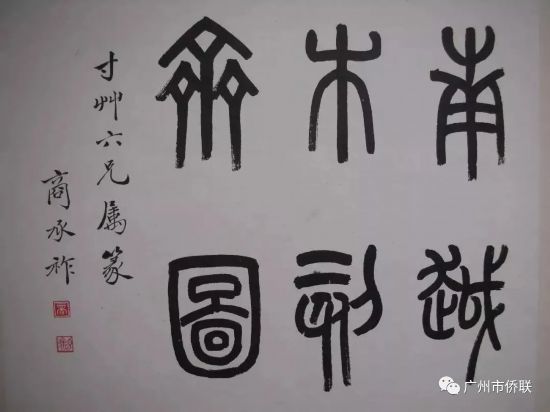 南越
木刻
齋圖
寸艸六兄属篆
商承祚
广州市侨联